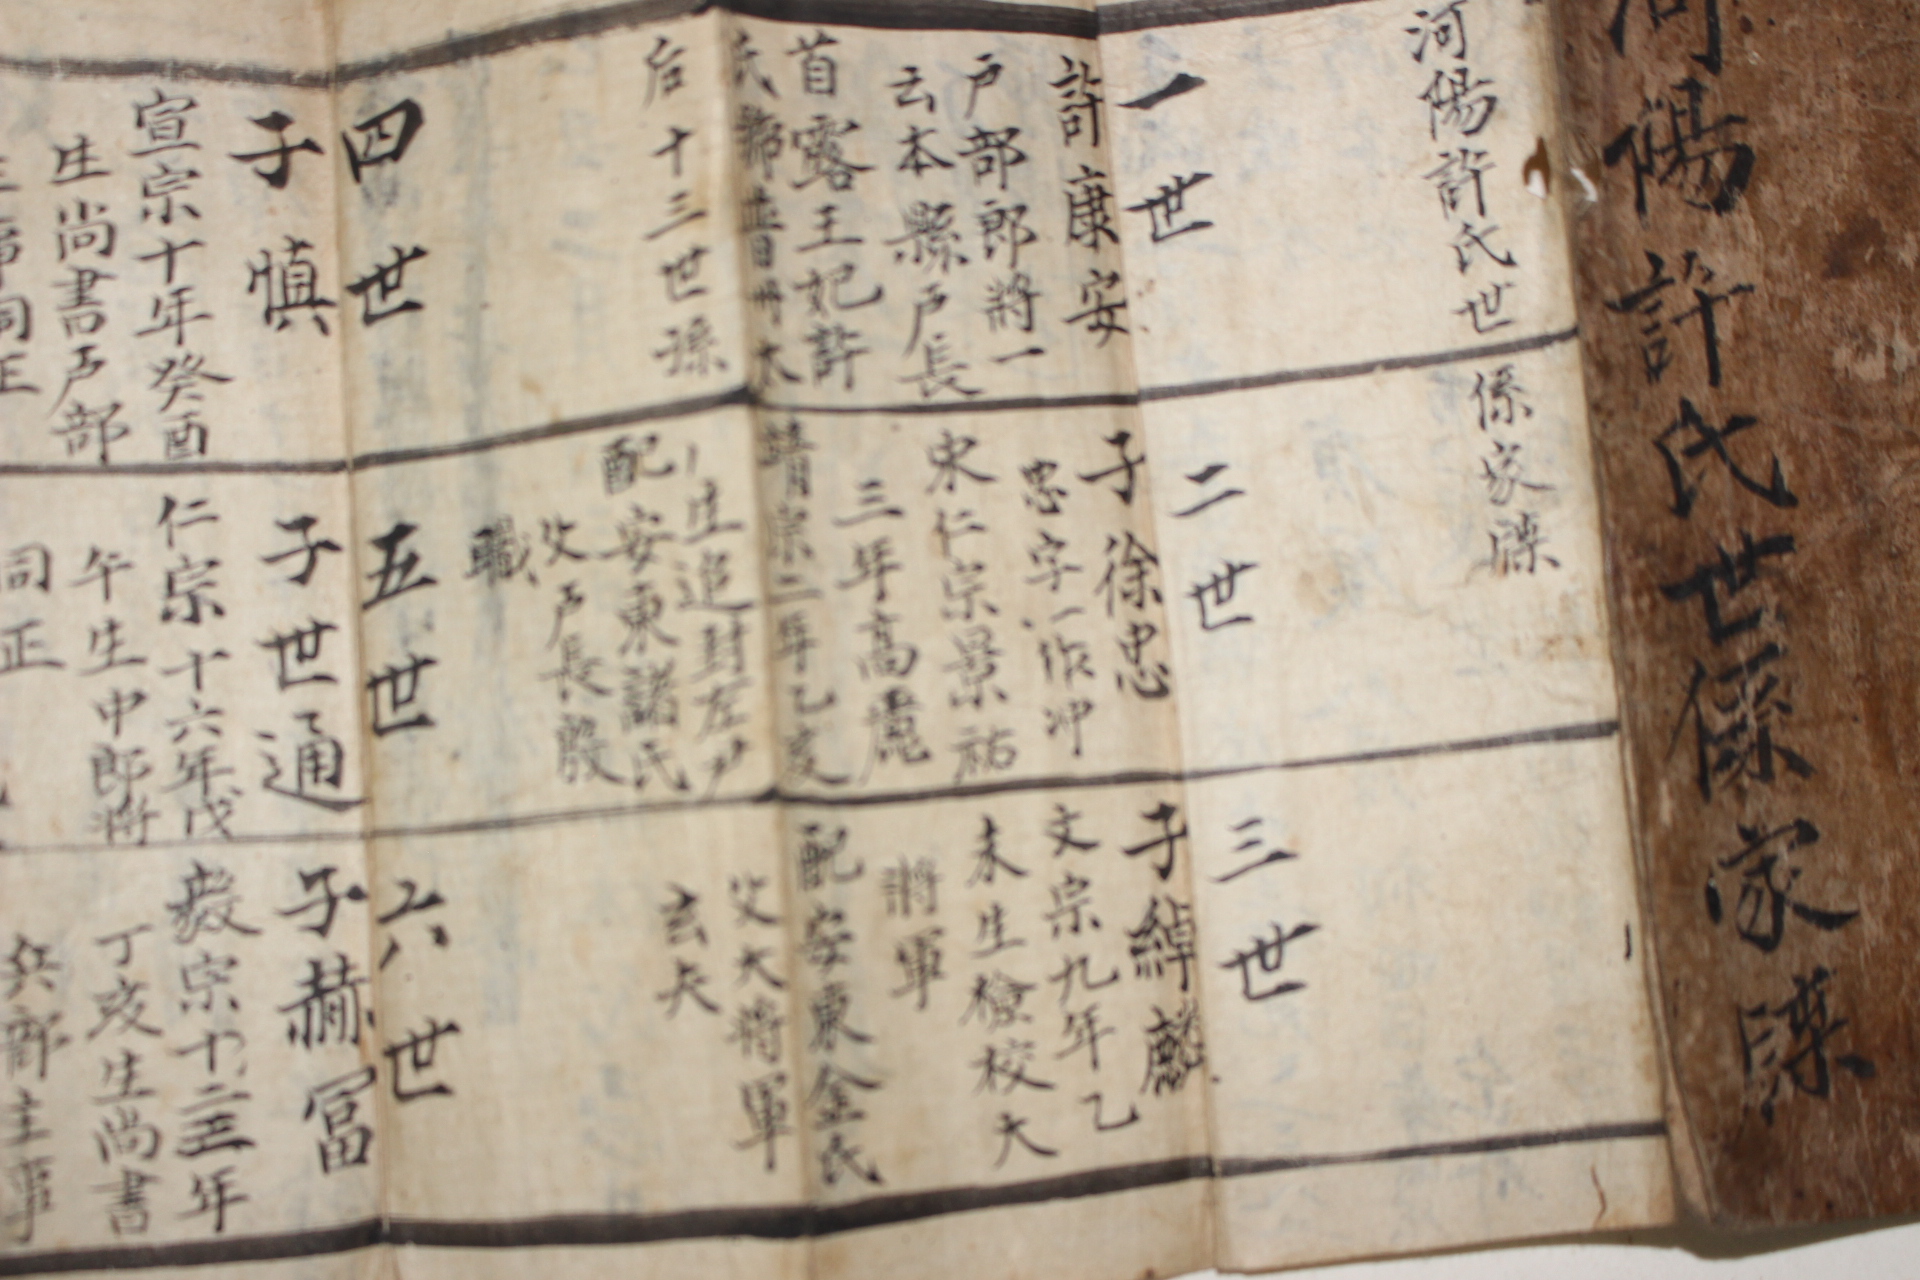 河陽許氏世係家牒
河陽許氏世
係家牒
一世
許康安
戶部郎將一
云本縣戶長
首露王妃許
氏鄕普州太
后十三世孫
二世
子徐忠
忠字一作冲
宋仁宗景祐
三年高麗
靖宗二年乙亥
生追封左尹
配安東諸氏
父戶長殷
職
三世
子綽麟
文宗九年乙
未生檢校大
將軍
配安東金氏
父大將軍
玄夫
四世
子愼
宣宗十年癸酉
生尚書戶部
同正
五世
子世通
仁宗十六年戊
午生中郎將
同正
六世
子赫冨
毅宗十二三年
丁亥生尚書
兵部主事